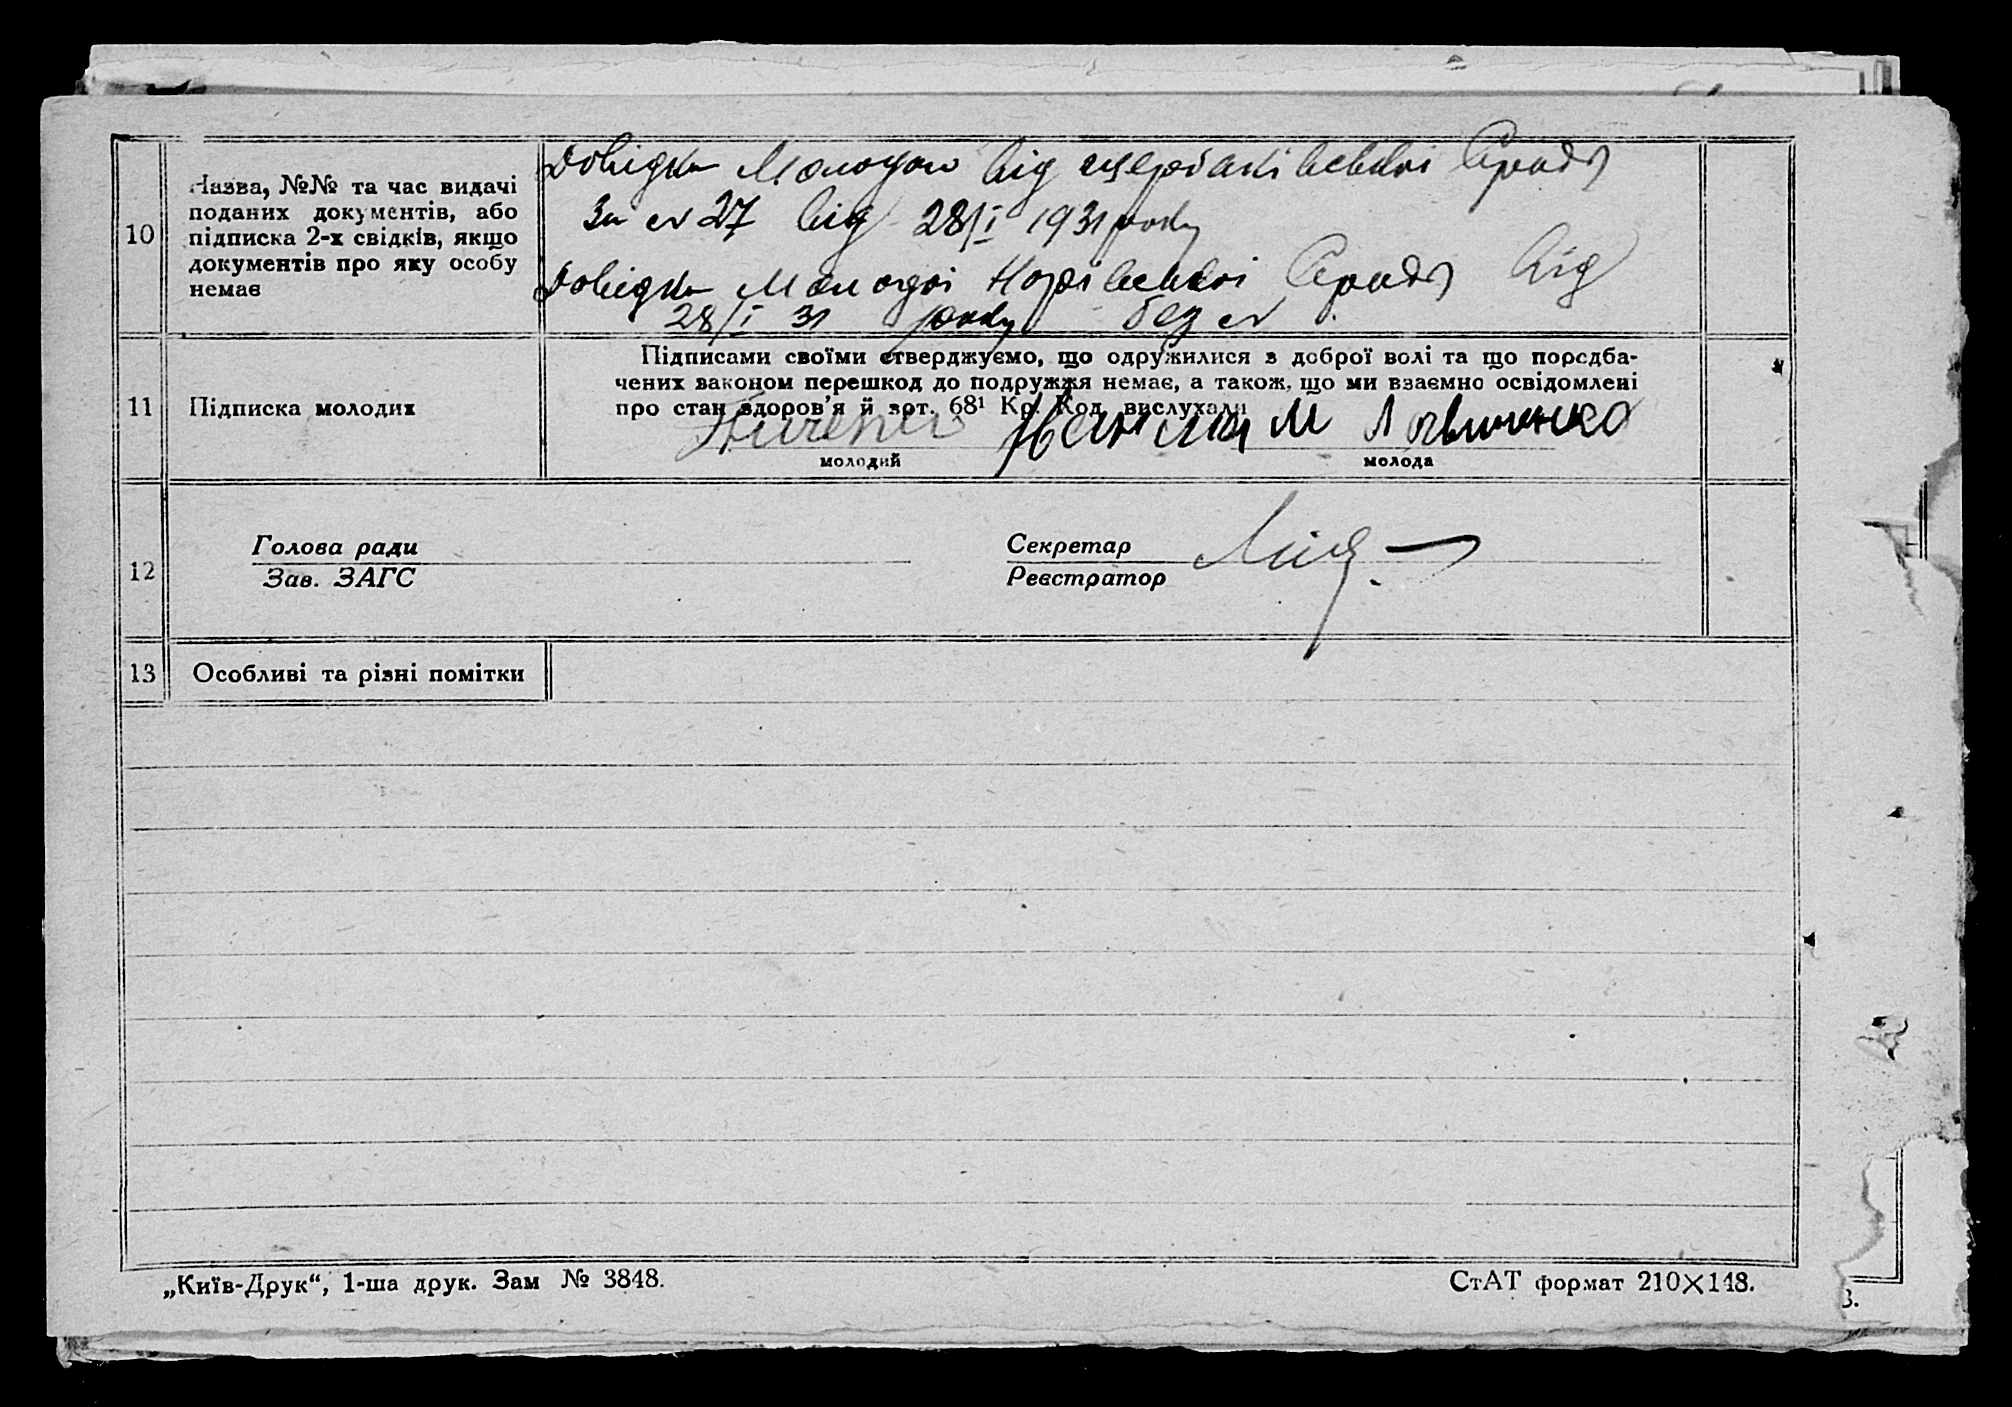 10
Назва, №№ та час видачі
поданих документів, або
підписка 2-х свідків, якщо
документів про яку особу
немає
Довідка Молодого від Щербаківської Сради
За № 27 від 28/I 1931 року
Довідка Молодої Норівської Сради від
28/I 31 року без №
11
Підписка молодих
Підписами своїми стверджуємо, що одружилися з доброї волі та що передба-
чених законом перешкод до подружжя немає, а також, що ми взаємно освідомлені
про стан здоров'я й арт. 68¹ Кр. Код. вислухали
М Логвиненко
молодий
молода
12
Голова ради
Зав. ЗАГС
Секретар
Реєстратор
13
Особливі та різні помітки
„Київ-Друк“, 1-ша друк. Зам № 3848.
СтАТ формат 210×148.